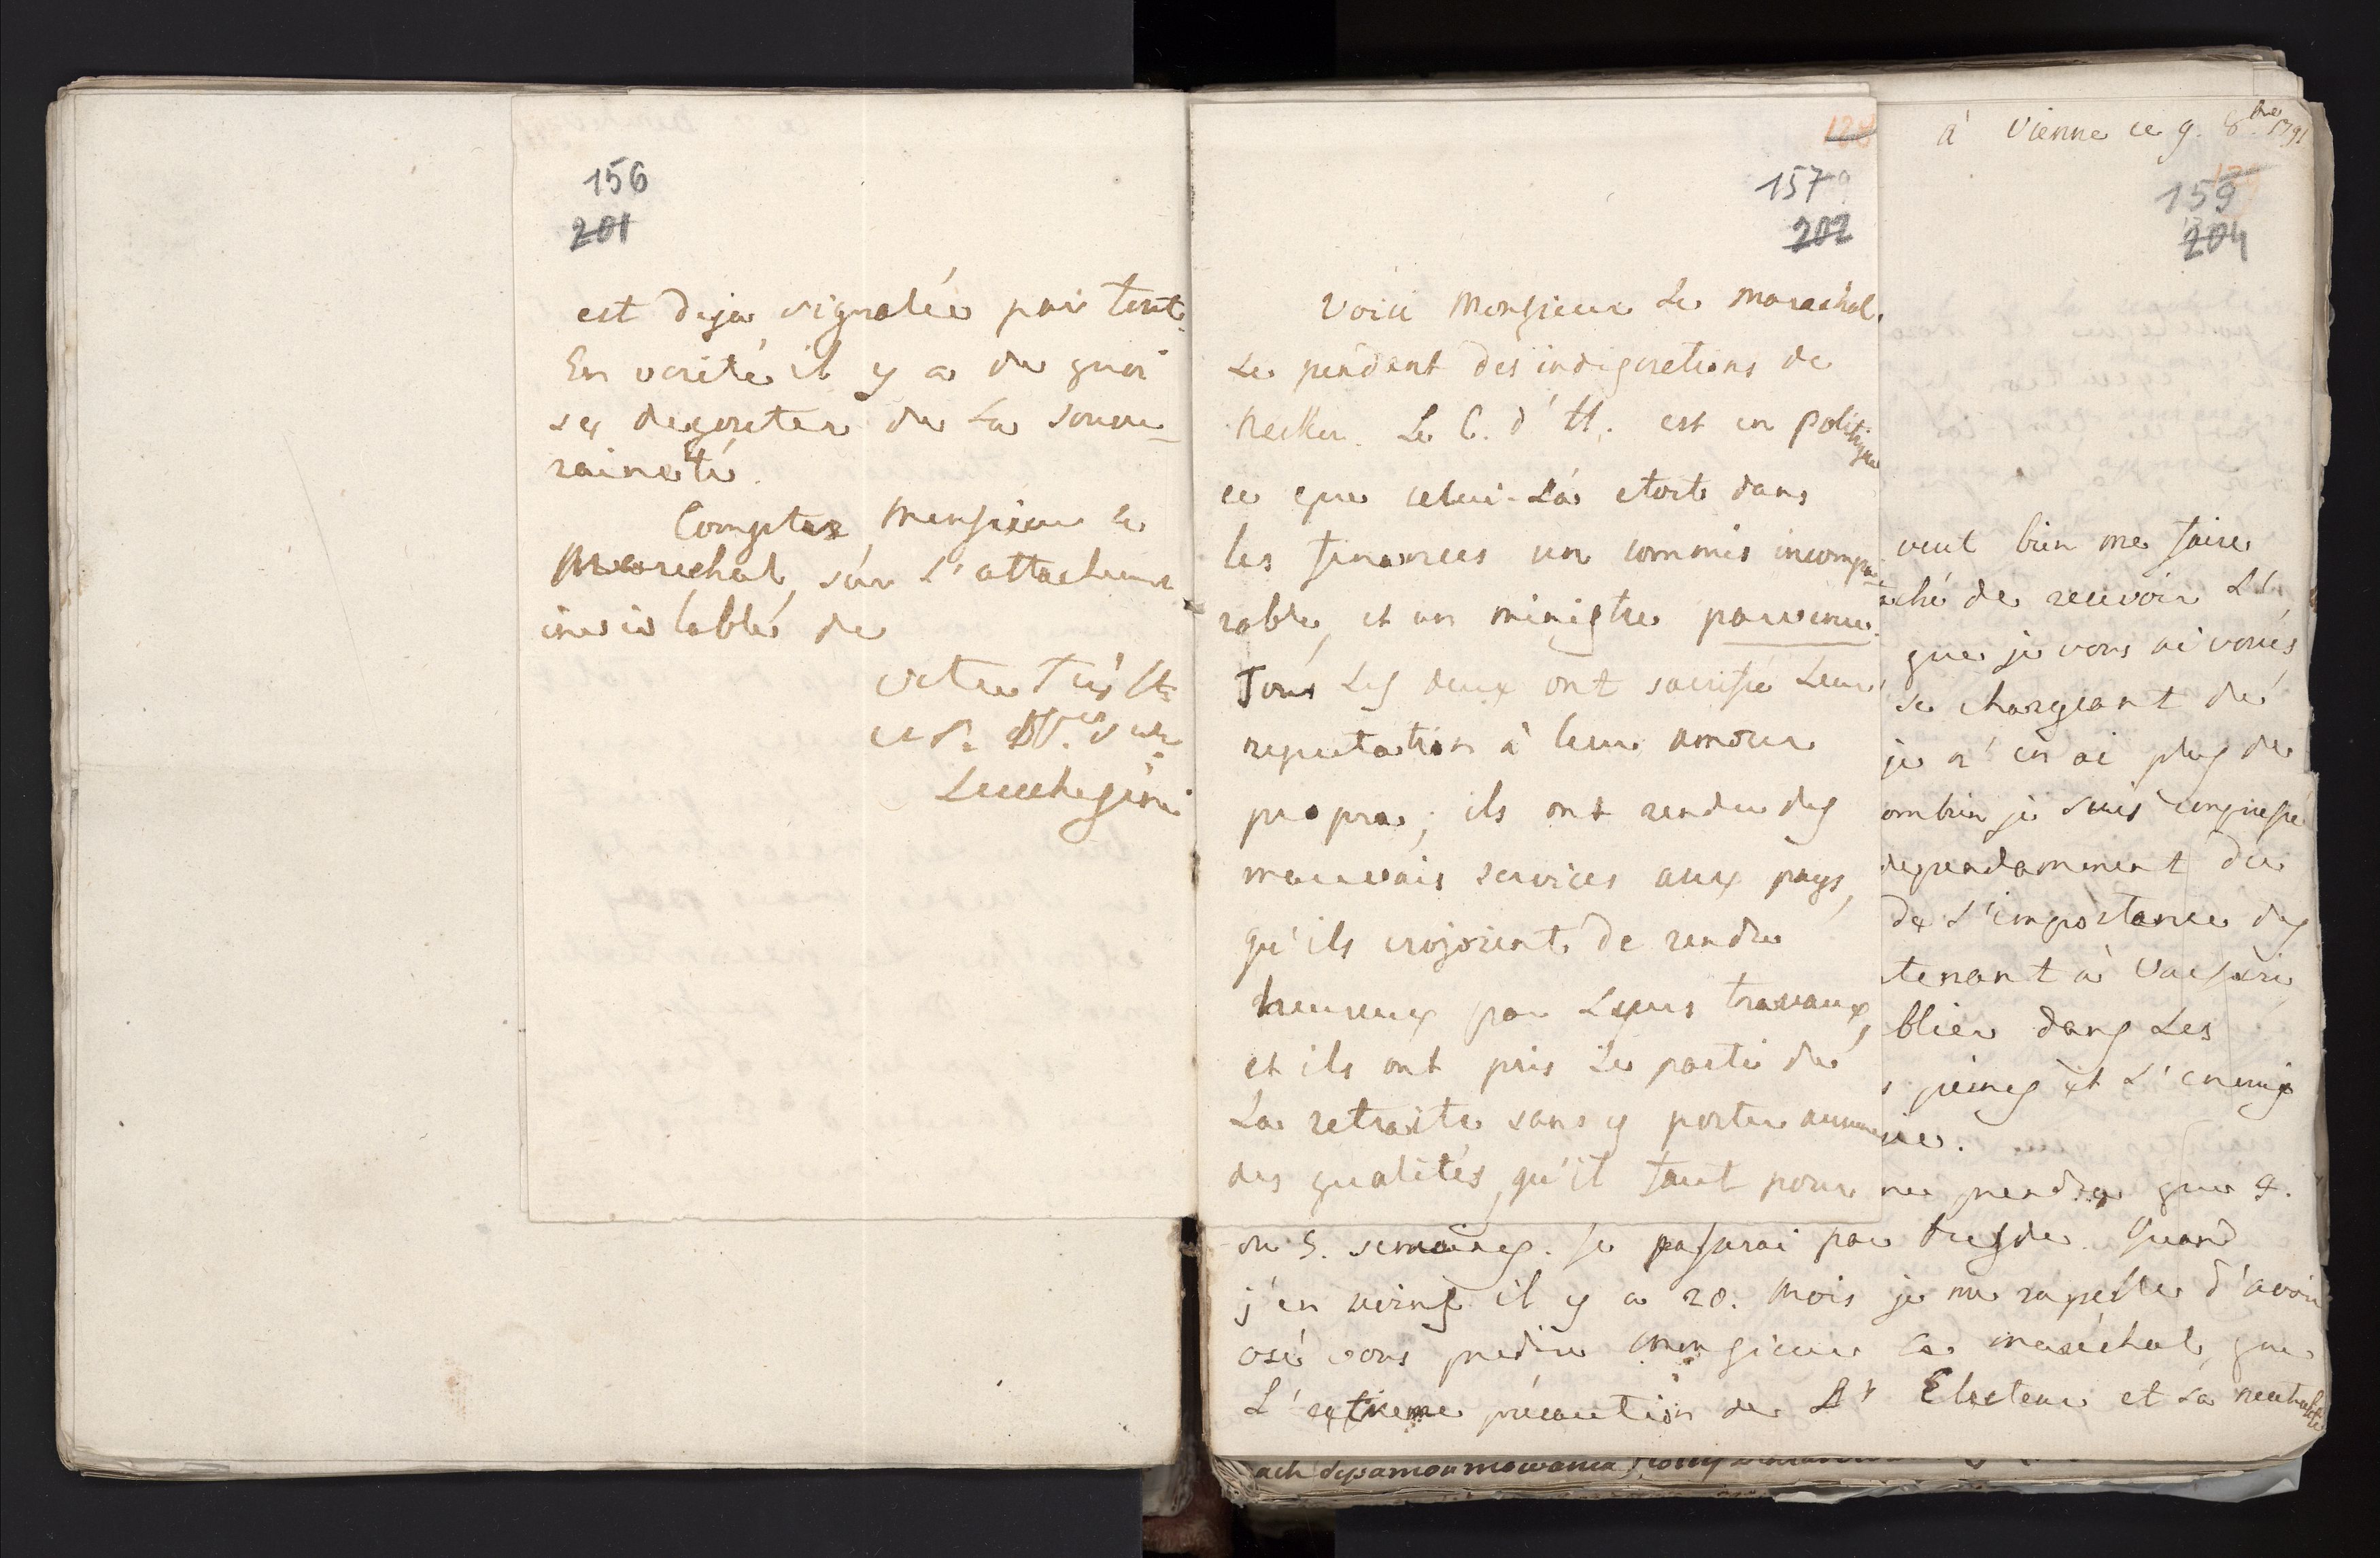 156
201
est deja signalée par tout.
En verité il y a de quoi
se degouter de La souve-
raineté.
Comptez, Monsieur le
Marechal, sur L'attachement
inviolable de
votre Très
Lucchesini
128
157
202
Voici Monsieur Le Marechal.
Le pendant des indiscretions de
Necker. Le C. d'H. est en politique
ce que celui-Là etoit dans
les finances un commis incompa-
rable, et un ministre parvenu.
Tous Les deux ont sacrifié Leur
reputation à leur amour
propre; ils ont rendu des
mauvais services aux pays,
qu'ils croyoient de rendre
heureux par Leurs travaux,
et ils ont pris Le parti de
La retraite sans y porter aucune
des qualités, qu'il faut pour
à Vienne ce 9. 8bre 1791
129
159
204
veut bien me faire
aché de recevoir Les
que je vous ai voués
se chargeant de
je n'en ai plus de
ombien je suis
dependamment du
de L'importance des
tenant à Varsovie
blier dans Les
s peines et L'ennui
ie.
ne prendra que 4.
ou 5. semaines. Je passerai par Dresde. Quand
j'en vins il y a 20. mois je me rapelle d'avoir
osé vous predire Monsieur Le maréchal, que
L'extreme précaution de Lr Electeur et sa neutralité